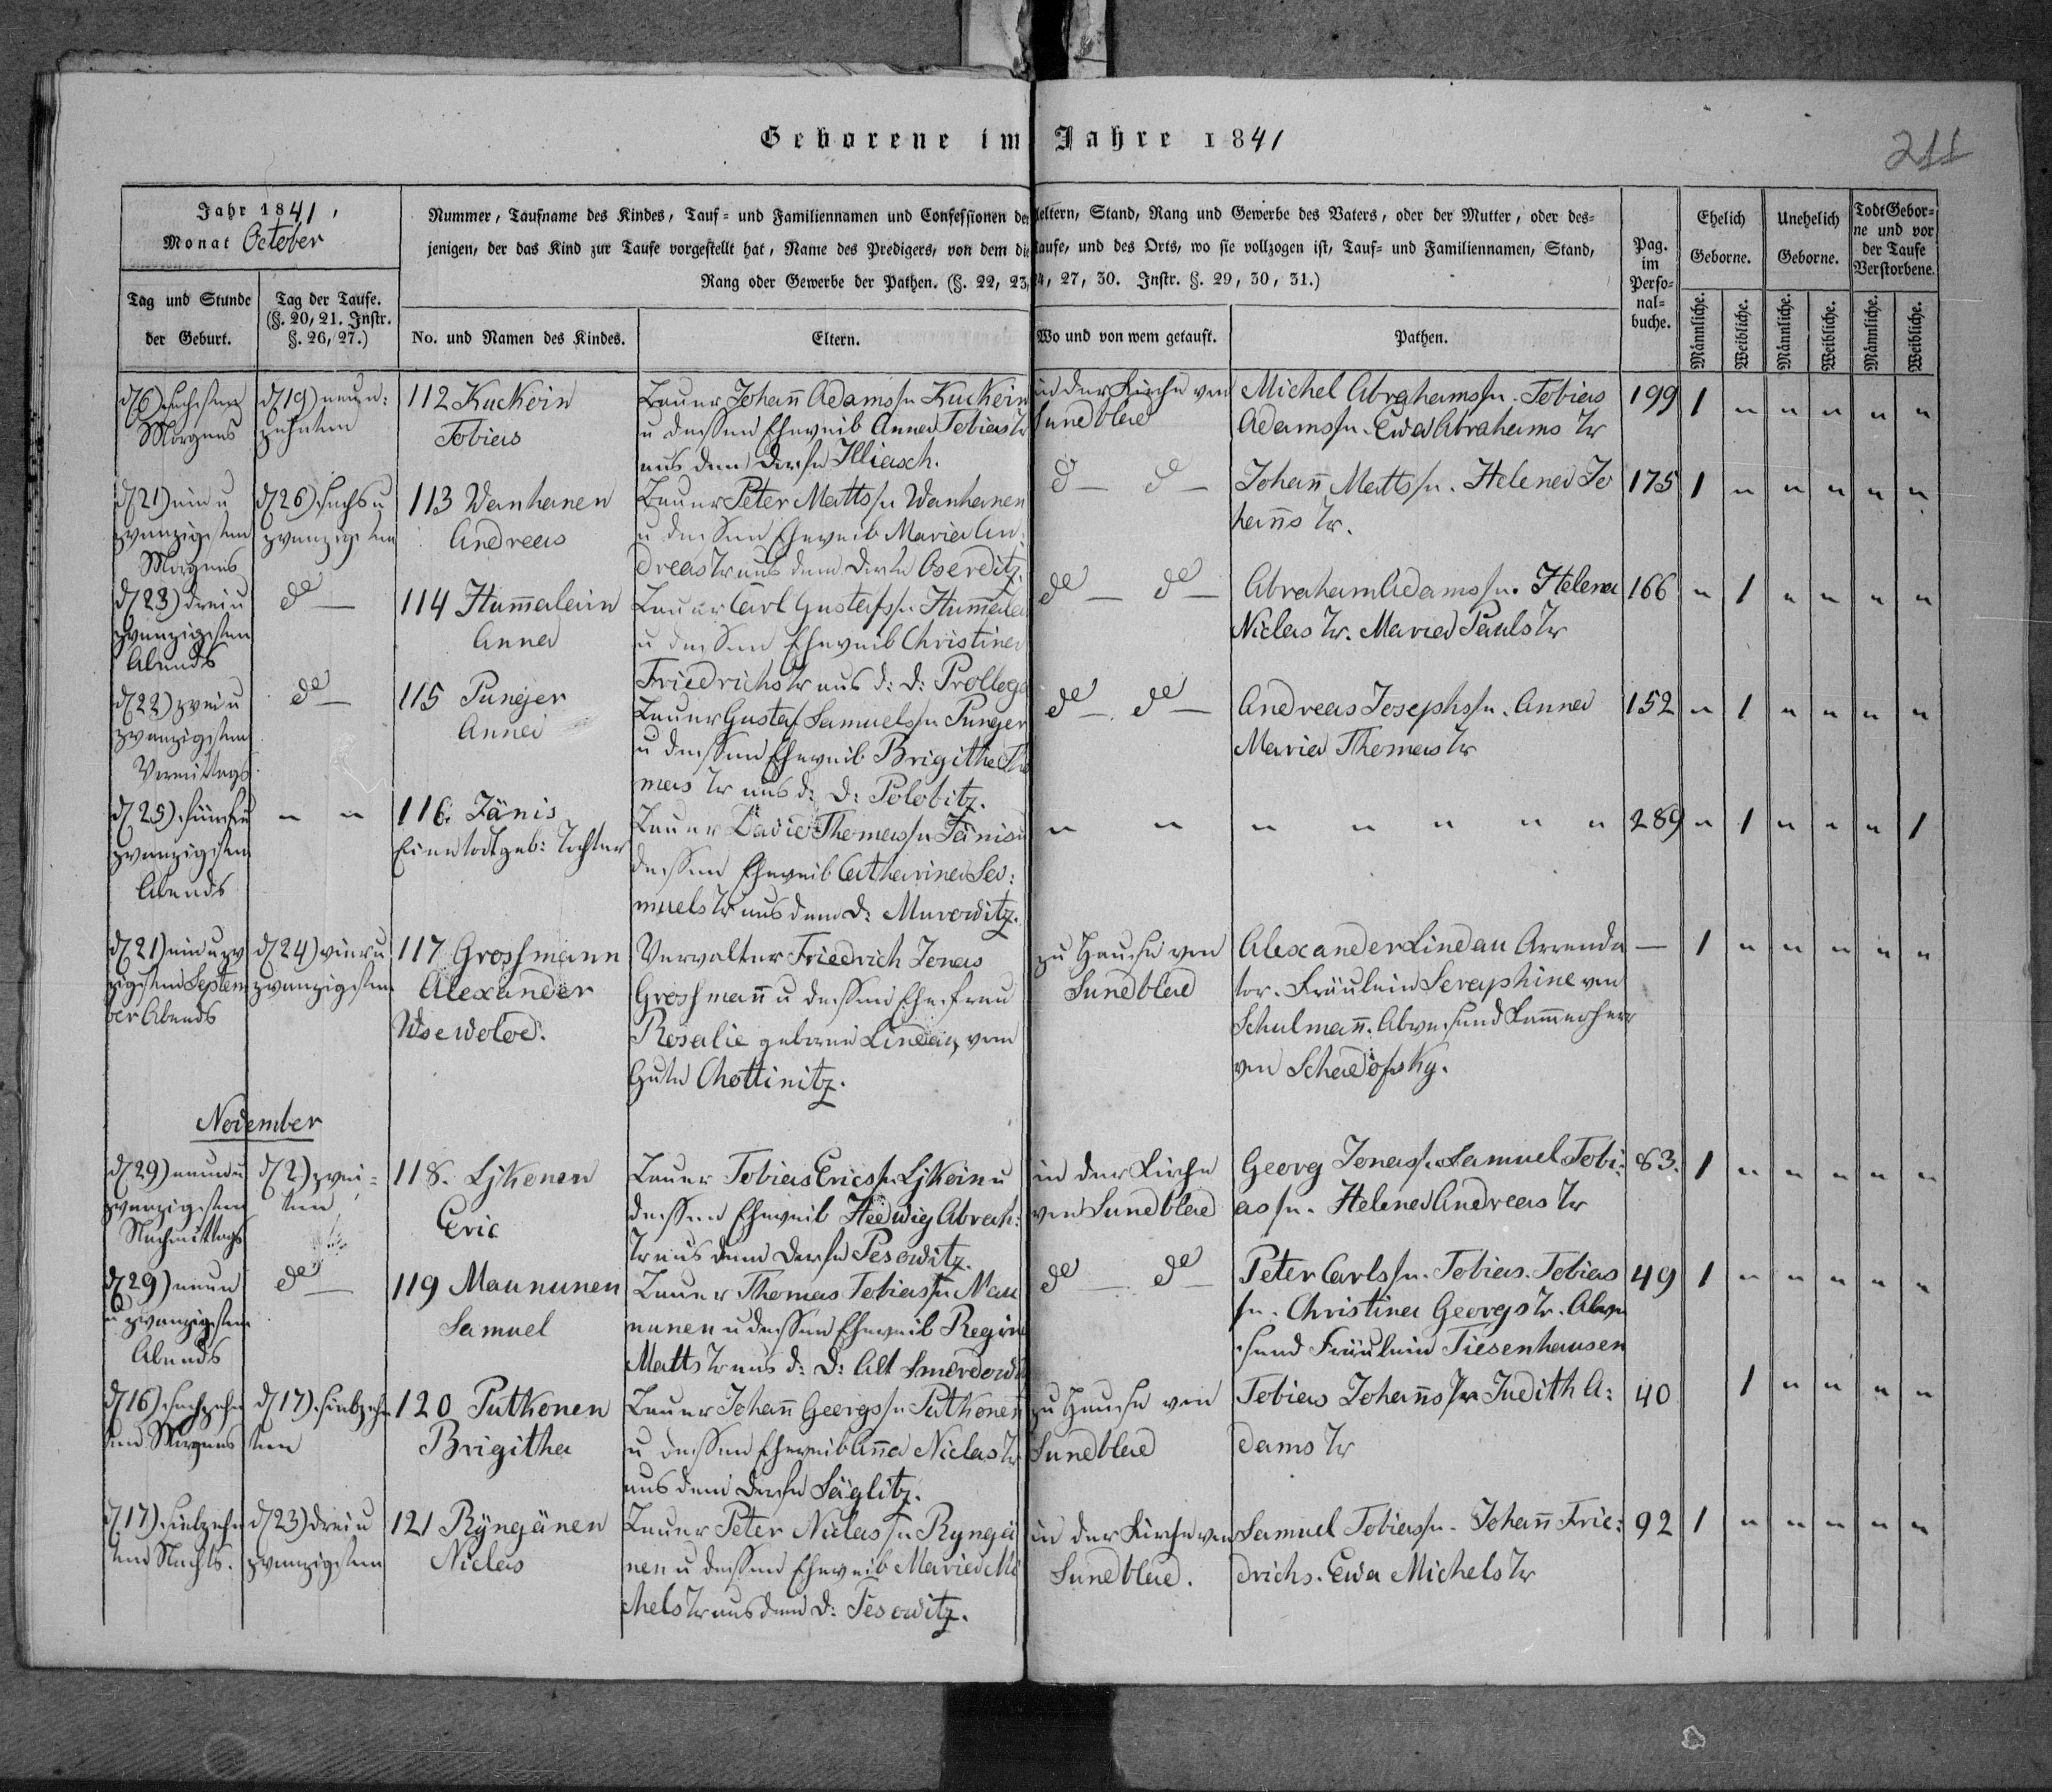 Geborene im Jahre 1841
211
Jahr 1841,
Monat October
Nummer, Taufname des Kindes, Tauf- und Familiennamen und Confessionen der Aeltern, Stand, Rang und Gewerbe des Vaters, oder der Mutter, oder des-
jenigen, der das Kind zur Taufe vorgestellt hat, Name des Predigers, von dem die Taufe, und des Orts, wo sie vollzogen ist, Tauf- und Familiennamen, Stand,
Rang oder Gewerbe der Pathen. (§. 22, 23, 24, 27, 30. Instr. §. 29, 30, 31.)
Pag.
im
Perso-
nal-
buche.
Ehelich
Geborne.
Unehelich
Geborne.
Todt Gebor-
ne und vor
der Taufe
Verstorbene.
Tag und Stunde
der Geburt.
Tag der Taufe.
(§. 20, 21. Instr.
§. 26, 27.)
No. und Namen des Kindes.
Eltern.
Wo und von wem getauft.
Pathen.
Männliche.
Weibliche.
Männliche.
Weibliche.
Männliche.
Weibliche.
d 6) sechsten
Morgens
d 19) neun:
zehnten
112 Kuckoin
Tobias
Bauer Johañ Adamssn Kuckoin
u dessen Eheweib Anna Tobias Tr
aus dem Dorfe Illiasch.
in der Kirche von
Sundblad
Michel Abrahamssn. Tobias
Adamssn. Ewa Abrahams Tr
199 1 " " " " "
d 21) ein u
zwanzigsten
Morgens
d 26) sechs u
zwanzigsten
113 Wanhanen
Andreas
Bauer Peter Mattssn Wanhanen
u dessen Eheweib Maria An:
dreas Tr aus dem Dorfe Oserditz.
d — d —
Johañ Mattssn. Helena Jo
hañs Tr.
175 1 " " " " "
d 23) drei u
zwanzigsten
Abends
do —
114 Hum̃alain
Anna
Bauer Carl Gustafssn Hum̃ala
u dessen Eheweib Christina
Friedrichs Tr aus d: D: Prolloga
do — do —
Abraham Adamssn. Helena
Niclas Tr. Maria Pauls Tr
166 " 1 " " " "
d 22) zwei u
zwanzigsten
Vormittags
do —
115 Punejer
Anna
Bauer Gustaf Samuelssn Punejer
u dessen Eheweib Brigitha Tho
mas Tr aus d: D: Polobitz.
do — do —
Andreas Josephssn. Anna
Maria Thomas Tr
152 " 1 " " " "
d 25) fünf u
zwanzigsten
Abends
" "
116. Jänis
Eine todtgeb: Tochter
Bauer David Thomassn Jänis u
dessen Eheweib Catharina Sa:
muels Tr aus dem D: Murowitz.
" " " " " " "
289 " 1 " " " 1
d 21) ein u zwan
zigsten Septem
ber Abends
d 24) vier u
zwanzigsten
117 Grossmann
Alexander
Wsewolod.
Verwalter Friedrich Jonas
Grossmañ u dessen Ehefrau
Rosalie geborne Lindau, vom
Gute Chottinitz.
zu Hause von
Sundblad
Alexander Lindau Arrenda
tor. Fräulein Seraphine von
Schulmañ. Abwesend Kammerherr
von Schadofsky.
— 1 " " " " "
November
d 29) neun u
zwanzigsten
Nachmittags
d 2) zwei-
ten
118. Lÿkonen
Eric
Bauer Tobias Ericssn Lÿkoin u
dessen Eheweib Hedwig Abrah:
Tr aus dem Dorfe Pesowitz.
in der Kirche
von Sundblad
Georg Jonassn. Samuel Tobi:
assn. Helena Andreas Tr
83. 1 " " " " "
d 29) neun
u zwanzigsten
Abends
do —
119 Maununen
Samuel
Bauer Thomas Tobiassn Mau
nunen u dessen Eheweib Regina
Matts Tr aus d: D: Alt Smerdowitz
do — do —
Peter Carlssn. Tobias Tobias
sn. Christina Georgs Tr. Abwe
send Fräulein Tiesenhausen
49 1 " " " " "
d 16) sechzehn
ten Morgens
d 17) siebzehn
ten
120 Putkonen
Brigitha
Bauer Johañ Georgssn Putkonen
u dessen Eheweib Añna Niclas Tr
aus dem Dorfe Säglitz.
zu Hause von
Sundblad
Tobias Johañssn Judith A:
dams Tr
40 1 " " " "
d 17) siebzehn
ten Nachts.
d 23) drei u
zwanzigsten
121 Rÿngänen
Niclas
Bauer Peter Niclassn Ryngä
nen u dessen Eheweib Maria Mi
chels Tr aus dem D: Tesowitz.
in der Kirche von
Sundblad.
Samuel Tobiassn. Johañ Frie:
drichs. Ewa Michels Tr
92 1 " " " " "